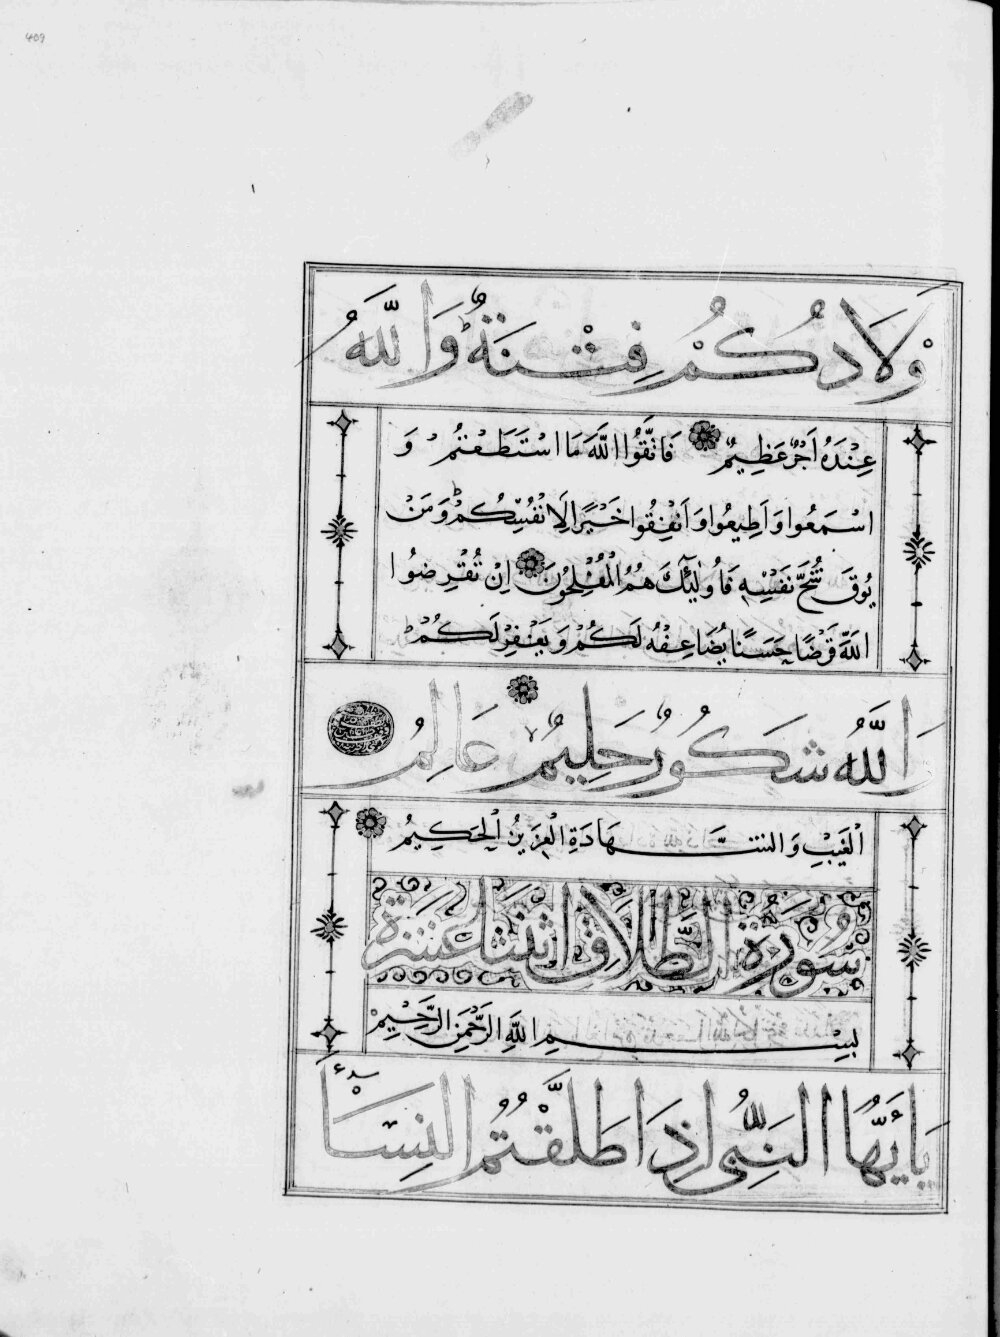 409
وْلَادُكُمْ فِتْنَةٌ وَاللَّهُ
عِنْدَهُ اَجْرٌ عَظِيمٌ فَاتَّقُوا اللَّهَ مَا اسْتَطَعْتُمْ وَ
اسْمَعُوا وَاَطِيعُوا وَاَنْفِقُوا خَيْرًا لِاَنْفُسِكُمْ وَمَنْ
يُوقَ شُحَّ نَفْسِهِ فَاُولٰئِكَ هُمُ الْمُفْلِحُونَ اِنْ تُقْرِضُوا
اللَّهَ قَرْضًا حَسَنًا يُضَاعِفْهُ لَكُمْ وَيَغْفِرْ لَكُمْ
وَاللَّهُ شَكُورٌ حَلِيمٌ عَالِمُ
الْغَيْبِ وَالشَّهَادَةِ الْعَزِيزُ الْحَكِيمُ
سُورَةُ الطَّلَاقِ اثْنَتَا عَشْرَةَ
بِسْمِ اللَّهِ الرَّحْمٰنِ الرَّحِيمْ
يَا اَيُّهَا النَّبِيُّ اِذَا طَلَّقْتُمُ النِّسَاءَ